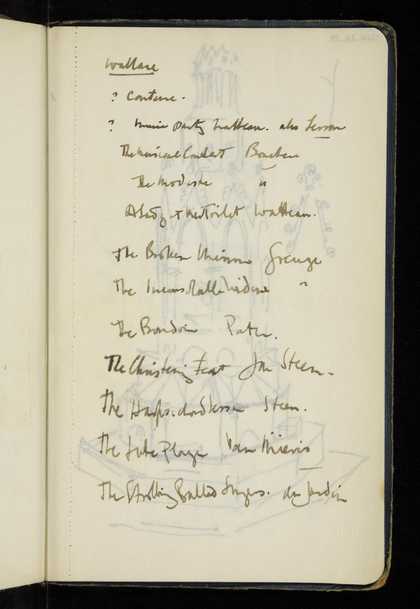 Wallace
? Couture.
? Music Party Watteau. also Lesson
The Musical Contest Boucher
The Modiste "
A Lady at her Toilet Watteau.
The Broken Mirror Greuze
The Inconsolable Widow "
The Boudoir Pater.
The Christening Feast Jan Steen.
The Harpsichord lesson Steen.
The Lute Player Van Mieris
The Strolling Ballad Singers. du Jardin